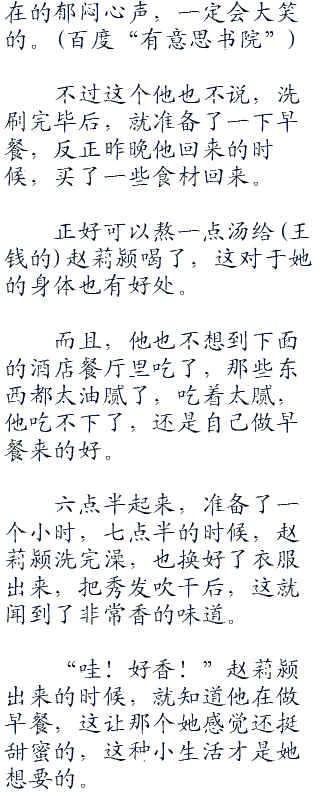 在的郁闷心声，一定会大笑
的。(百度“有意思书院”)
不过这个他也不说，洗
刷完毕后，就准备了一下早
餐，反正昨晚他回来的时
候，买了一些食材回来。
正好可以熬一点汤给(王
钱的)赵莉颍喝了，这对于她
的身体也有好处。
而且，他也不想到下面
的酒店餐厅里吃了，那些东
西都太油腻了，吃着太腻，
他吃不下了，还是自己做早
餐来的好。
六点半起来，准备了一
个小时，七点半的时候，赵
莉颍洗完澡，也换好了衣服
出来，把秀发吹干后，这就
闻到了非常香的味道。
“哇！好香！”赵莉颍
出来的时候，就知道他在做
早餐，这让那个她感觉还挺
甜蜜的，这种小生活才是她
想要的。